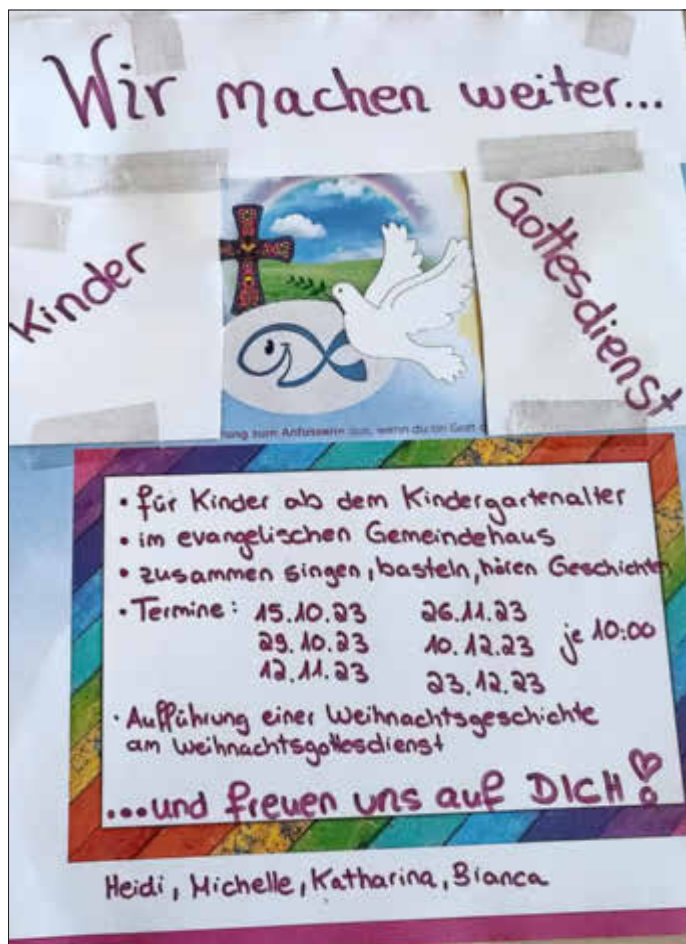 Wir machen weiter...
Kinder
Gottesdienst
zum Anfassen aus, wenn du an Gott
• für Kinder ab dem Kindergartenalter
• im evangelischen Gemeindehaus
• zusammen singen, basteln, hören Geschichten
• Termine: 15.10.23 26.11.23
29.10.23 10.12.23 je 10:00
12.11.23 23.12.23
• Aufführung einer Weihnachtsgeschichte
am Weihnachtsgottesdienst
...und freuen uns auf DICH!
Heidi, Michelle, Katharina, Bianca